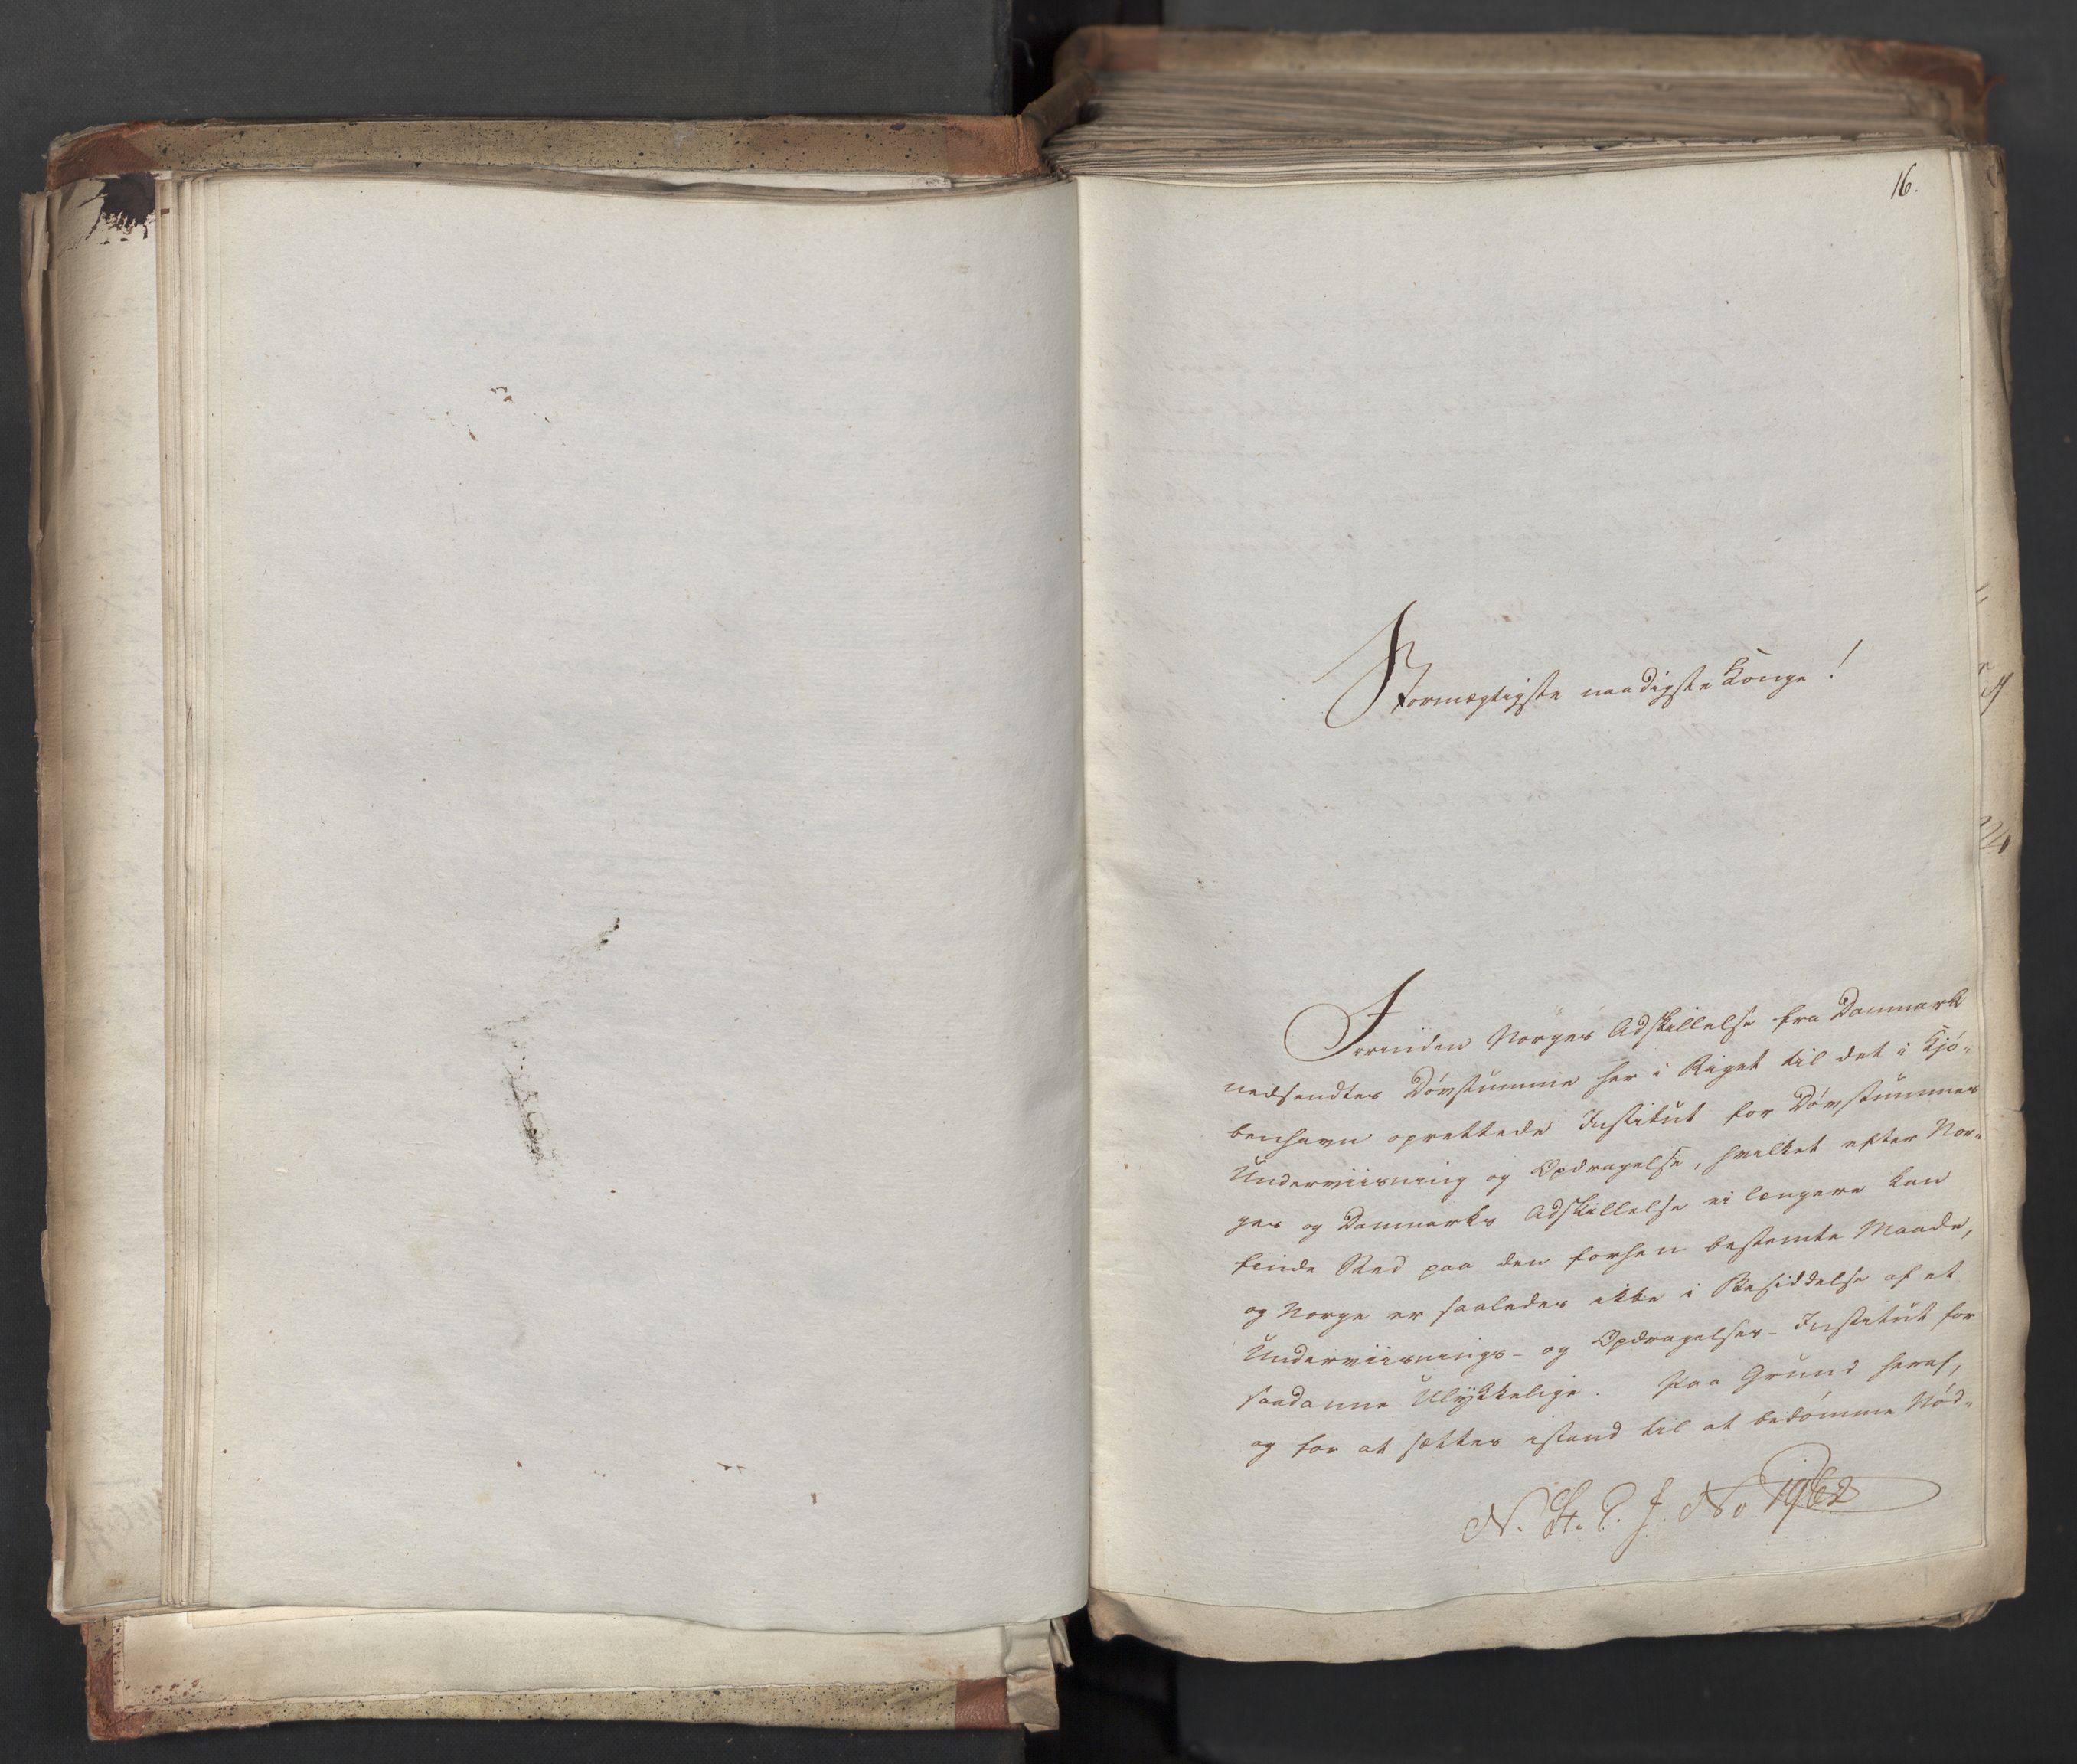 16.
Stormægtigste naadigste Konge!
Forinden Norges Adskillelse fra Danmark
nedsendtes Døvstumme her i Riget til det i Kjø-
benhavn oprettede Institut for Døvstummes
Underviisning og Opdragelse, hvilket efter Nor-
ges og Danmarks Adskillelse ei længere kan
finde Sted paa den forhen bestemte Maade,
og Norge er saaledes ikke i Besiddelse af et
Underviisnings- og Opdragelses-Institut for
saadanne Ulykkelige. Paa Grund heraf,
og for at sættes istand til at bedømme Nød-
N. St. S. J. No 1962